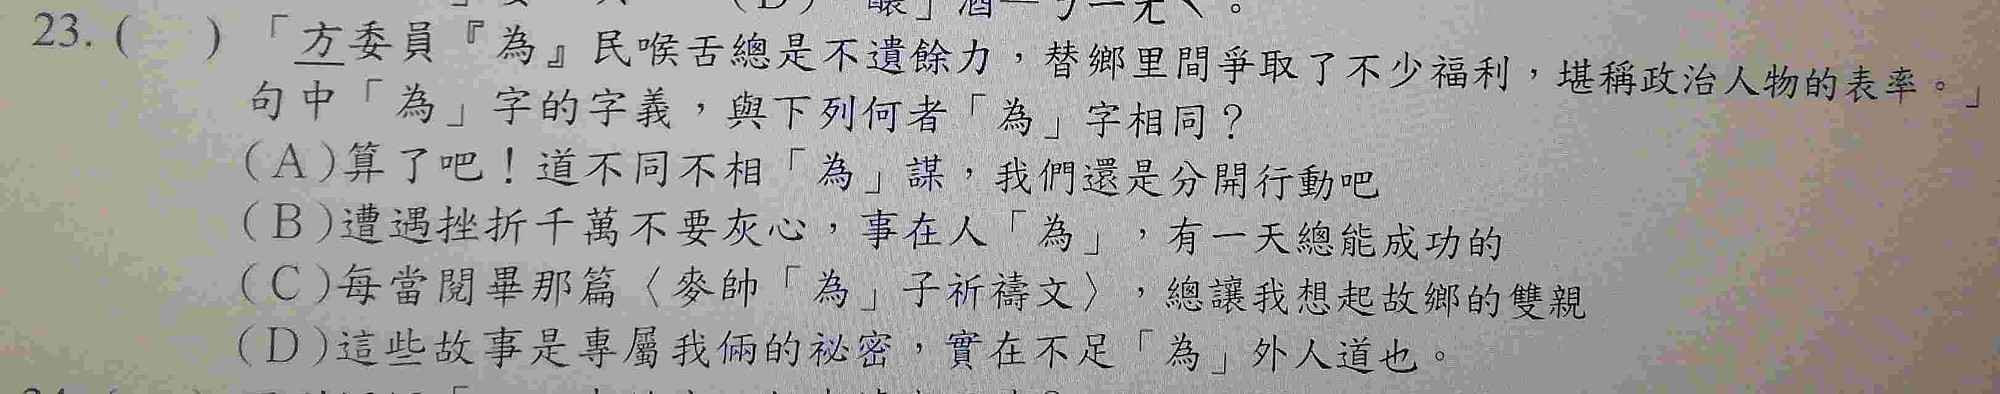 23. (　) 「方委員『為』民喉舌總是不遺餘力，替鄉里間爭取了不少福利，堪稱政治人物的表率。」
句中「為」字的字義，與下列何者「為」字相同？
(A)算了吧！道不同不相「為」謀，我們還是分開行動吧
(B)遭遇挫折千萬不要灰心，事在人「為」，有一天總能成功的
(C)每當閱畢那篇〈麥帥「為」子祈禱文〉，總讓我想起故鄉的雙親
(D)這些故事是專屬我倆的祕密，實在不足「為」外人道也。